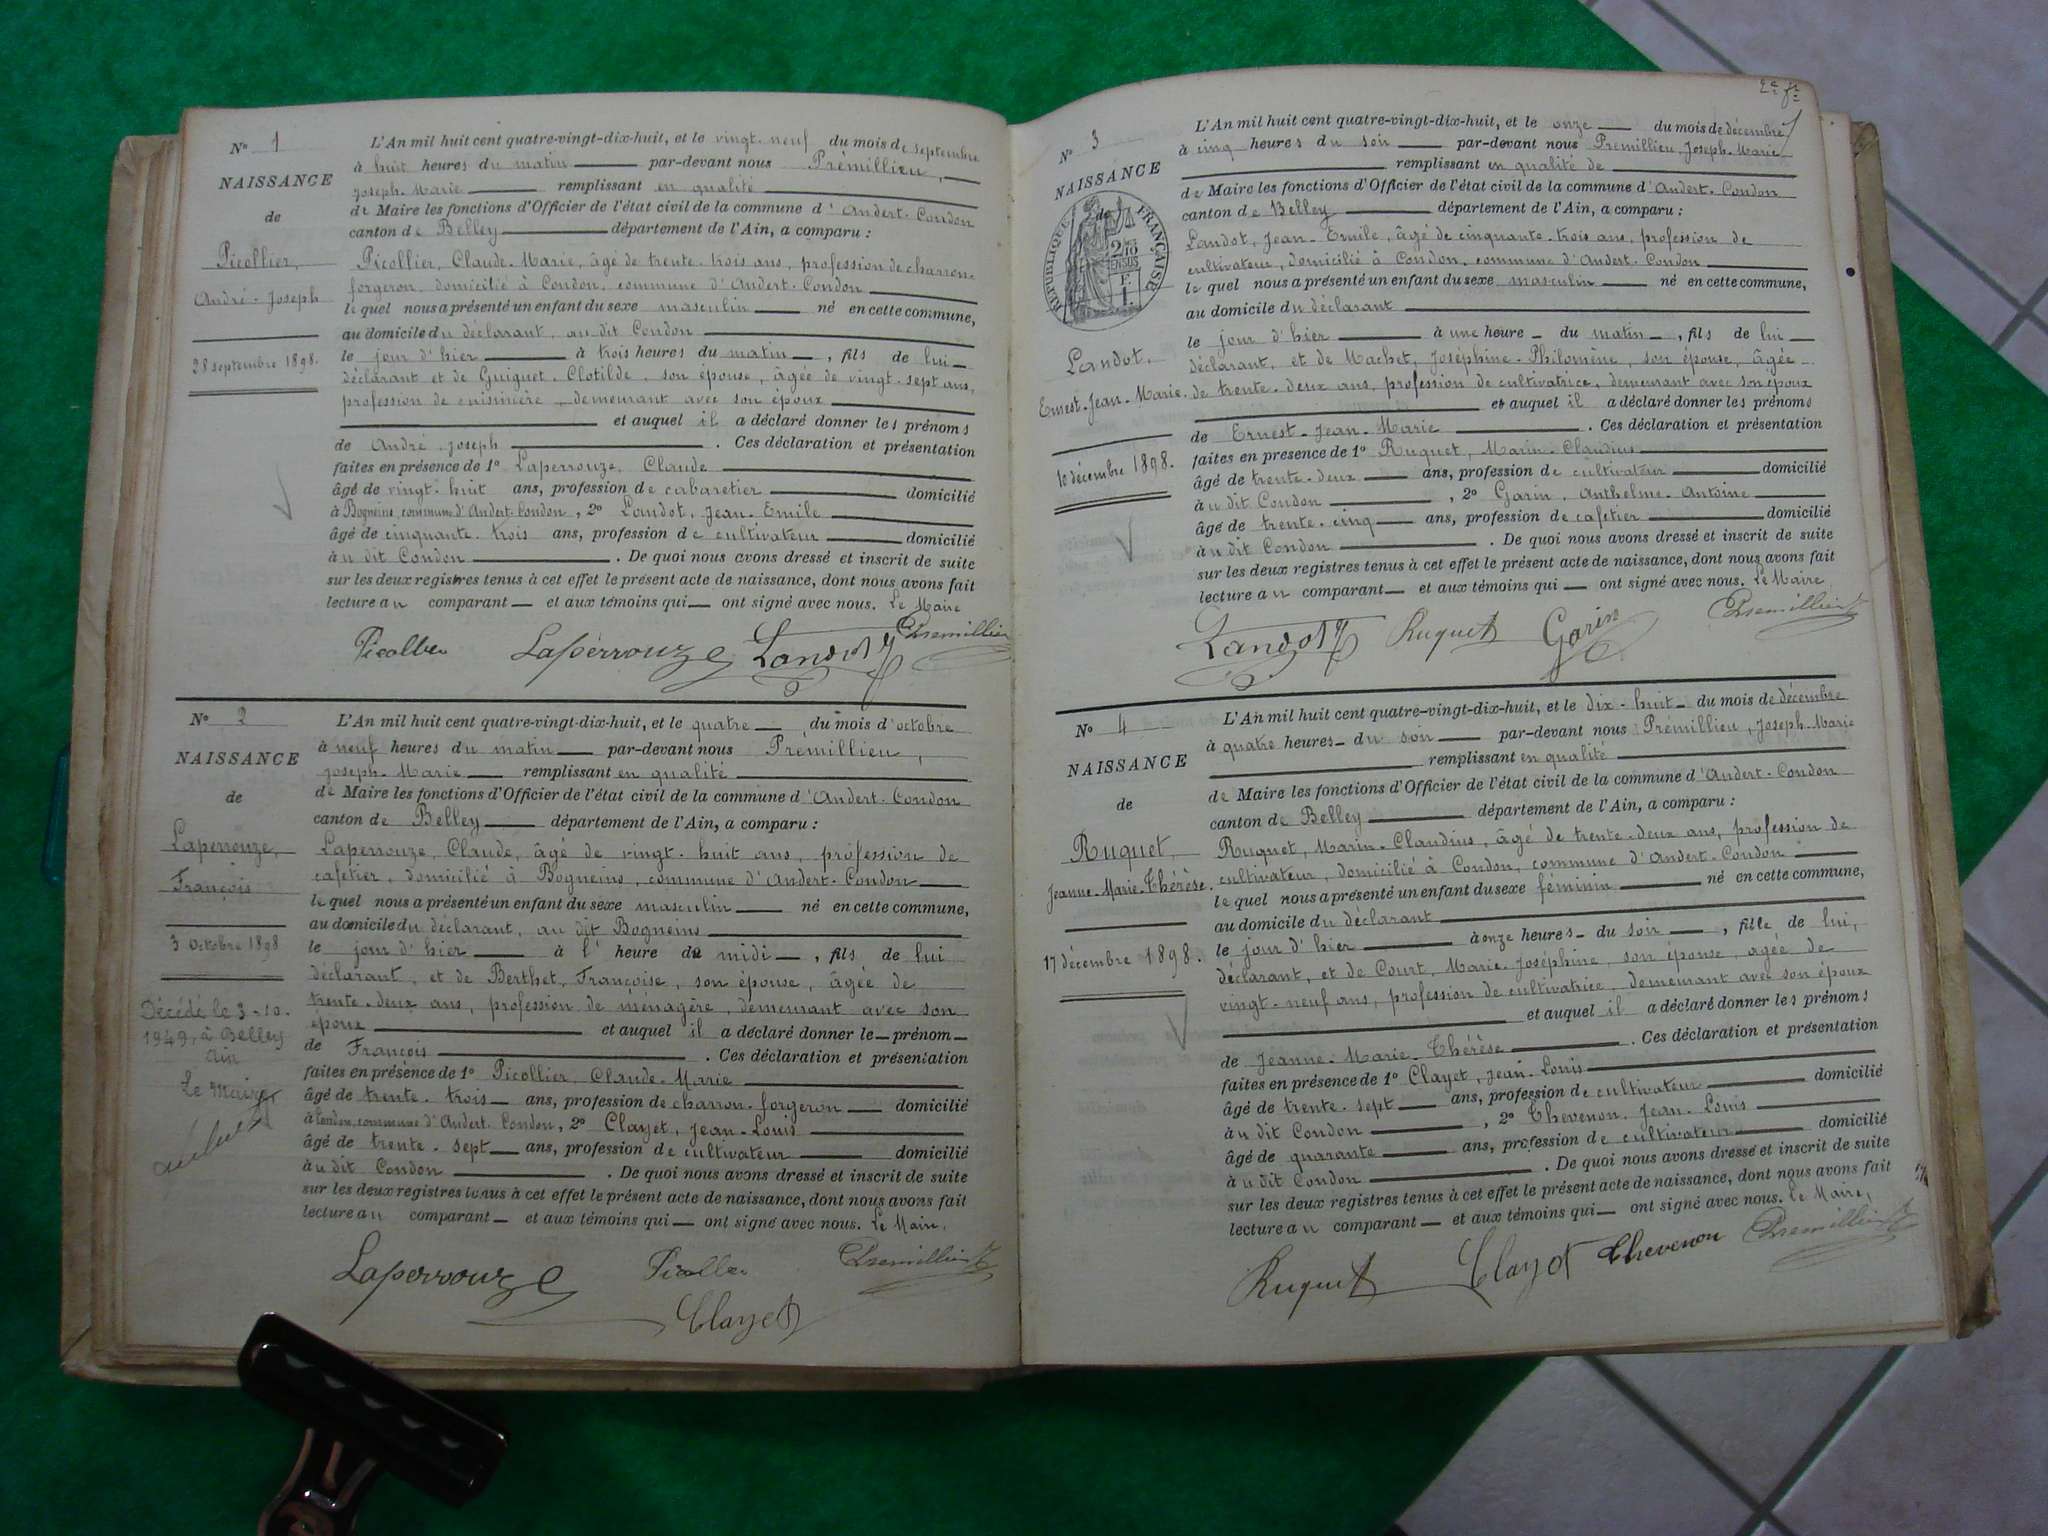 N° 1
NAISSANCE
de
Picollier,
André-Joseph
28 septembre 1898.
L'An mil huit cent quatre-vingt-dix-huit, et le vingt-neuf du mois de septembre
à huit heures du matin par-devant nous Prémillieu,
Joseph-Marie remplissant en qualité
de Maire les fonctions d'Officier de l'état civil de la commune d'Andert-Condon
canton de Belley département de l'Ain, a comparu :
Picollier, Claude-Marie, âgé de trente-trois ans, profession de charron-
forgeron, domicilié à Condon, commune d'Andert-Condon
lequel nous a présenté un enfant du sexe masculin né en cette commune,
au domicile du déclarant, au dit Condon
le jour d'hier à trois heures du matin, fils de lui
déclarant et de Guiguet, Clotilde, son épouse, âgée de vingt-sept ans,
profession de cuisinière, demeurant avec son époux
et auquel il a déclaré donner les prénoms
de André-Joseph. Ces déclaration et présentation
faites en présence de 1° Laperrouze, Claude
âgé de vingt-huit ans, profession de cabaretier domicilié
à Bogneins, commune d'Andert-Condon, 2° Landot, Jean-Emile
âgé de cinquante-trois ans, profession de cultivateur domicilié
à u dit Condon. De quoi nous avons dressé et inscrit de suite
sur les deux registres tenus à cet effet le présent acte de naissance, dont nous avons fait
lecture au comparant et aux témoins qui ont signé avec nous. Le Maire
Picollier Laperrouze Landot Premillieu
N° 2
NAISSANCE
de
Laperrouze,
François
3 Octobre 1898
Décédé le 3-10.
1949, à Belley
Ain
Le Maire
L'An mil huit cent quatre-vingt-dix-huit, et le quatre du mois d'octobre
à neuf heures du matin par-devant nous Prémillieu,
Joseph-Marie remplissant en qualité
de Maire les fonctions d'Officier de l'état civil de la commune d'Andert-Condon
canton de Belley département de l'Ain, a comparu :
Laperrouze, Claude, âgé de vingt-huit ans, profession de
cafetier, domicilié à Bogneins, commune d'Andert-Condon
lequel nous a présenté un enfant du sexe masculin né en cette commune,
au domicile du déclarant, au dit Bogneins
le jour d'hier à l'heure de midi, fils de lui
déclarant, et de Berthet, Françoise, son épouse, âgée de
trente-deux ans, profession de ménagère, demeurant avec son
époux et auquel il a déclaré donner le prénom
de François. Ces déclaration et présentation
faites en présence de 1° Picollier, Claude-Marie
âgé de trente-trois ans, profession de charron-forgeron domicilié
à Condon, commune d'Andert-Condon, 2° Clayet, Jean-Louis
âgé de trente-sept ans, profession de cultivateur domicilié
à u dit Condon. De quoi nous avons dressé et inscrit de suite
sur les deux registres tenus à cet effet le présent acte de naissance, dont nous avons fait
lecture au comparant et aux témoins qui ont signé avec nous. Le Maire,
Laperrouze Picollier Premillieu
Clayet
2e ft
N° 3
NAISSANCE
de
RÉPUBLIQUE FRANÇAISE
2/10 EN SUS
F.
1.
Landot,
Ernest-Jean-Marie.
10 décembre 1898.
L'An mil huit cent quatre-vingt-dix-huit, et le onze du mois de décembre
à cinq heures du soir par-devant nous Prémillieu, Joseph-Marie
remplissant en qualité de
de Maire les fonctions d'Officier de l'état civil de la commune d'Andert-Condon
canton de Belley département de l'Ain, a comparu :
Landot, Jean-Emile, âgé de cinquante-trois ans, profession de
cultivateur, domicilié à Condon, commune d'Andert-Condon
lequel nous a présenté un enfant du sexe masculin né en cette commune,
au domicile du déclarant
le jour d'hier à une heure du matin, fils de lui
déclarant, et de Machet, Joséphine-Philomène, son épouse, âgée
de trente-deux ans, profession de cultivatrice, demeurant avec son époux
et auquel il a déclaré donner les prénoms
de Ernest-Jean-Marie. Ces déclaration et présentation
faites en présence de 1° Ruguet, Marin-Claudius
âgé de trente-deux ans, profession de cultivateur domicilié
à u dit Condon, 2° Garin, Anthelme-Antoine
âgé de trente-cinq ans, profession de cafetier domicilié
à u dit Condon. De quoi nous avons dressé et inscrit de suite
sur les deux registres tenus à cet effet le présent acte de naissance, dont nous avons fait
lecture au comparant et aux témoins qui ont signé avec nous. Le Maire,
Landot Ruguet Garin Premillieu
N° 4
NAISSANCE
de
Ruguet,
Jeanne-Marie-Thérèse.
17 décembre 1898.
L'An mil huit cent quatre-vingt-dix-huit, et le dix-huit du mois de décembre
à quatre heures du soir par-devant nous Prémillieu, Joseph-Marie
remplissant en qualité
de Maire les fonctions d'Officier de l'état civil de la commune d'Andert-Condon
canton de Belley département de l'Ain, a comparu :
Ruguet, Marin-Claudius, âgé de trente-deux ans, profession de
cultivateur, domicilié à Condon, commune d'Andert-Condon
lequel nous a présenté un enfant du sexe féminin né en cette commune,
au domicile du déclarant
le jour d'hier à onze heures du soir, fille de lui,
déclarant, et de Court, Marie-Joséphine, son épouse, âgée de
vingt-neuf ans, profession de cultivatrice, demeurant avec son époux
et auquel il a déclaré donner les prénoms
de Jeanne-Marie-Thérèse. Ces déclaration et présentation
faites en présence de 1° Clayet, Jean-Louis
âgé de trente-sept ans, profession de cultivateur domicilié
à u dit Condon, 2° Thevenon, Jean-Louis
âgé de quarante ans, profession de cultivateur domicilié
à u dit Condon. De quoi nous avons dressé et inscrit de suite
sur les deux registres tenus à cet effet le présent acte de naissance, dont nous avons fait
lecture au comparant et aux témoins qui ont signé avec nous. Le Maire,
Ruguet Clayet Thevenon Premillieu